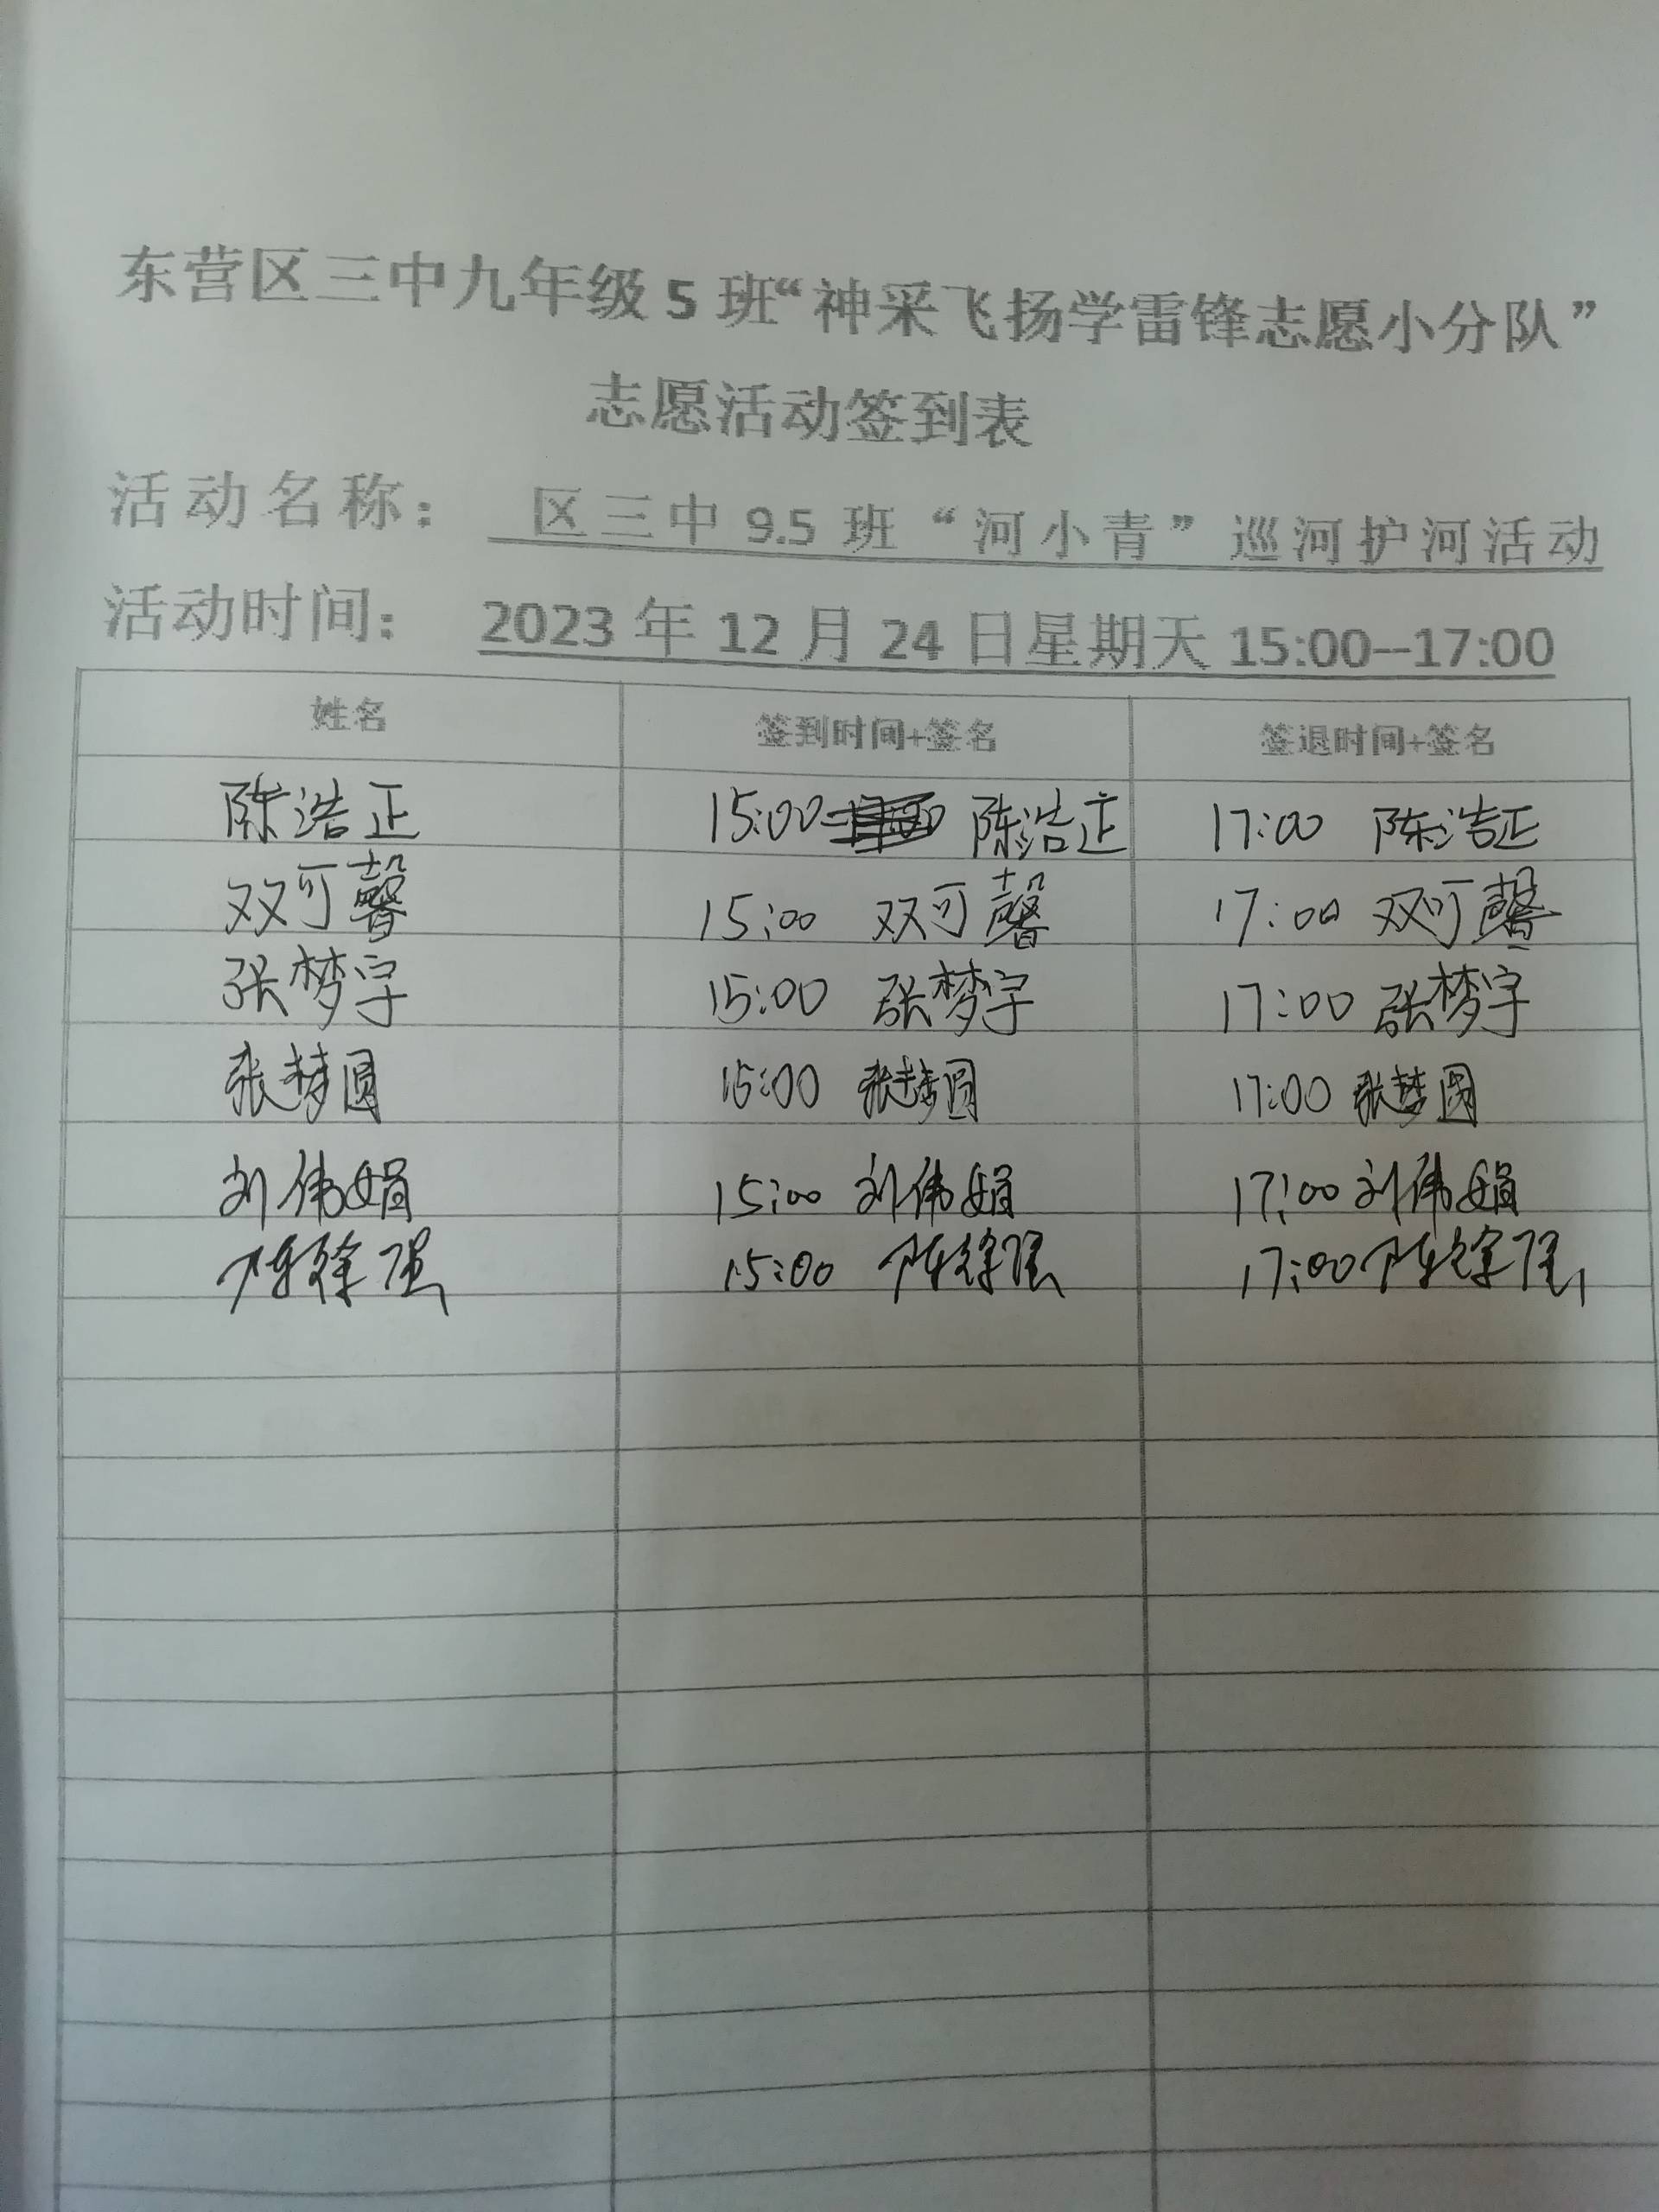 东营区三中九年级 5 班“神采飞扬学雷锋志愿小分队”
志愿活动签到表
活动名称： 区三中 9.5 班“河小青”巡河护河活动
活动时间： 2023 年 12 月 24 日星期天 15:00--17:00
姓名 签到时间+签名 签退时间+签名
陈浩正 15:00 陈浩正 17:00 陈浩正
双可馨 15:00 双可馨 17:00 双可馨
张梦宇 15:00 张梦宇 17:00 张梦宇
张梦圆 15:00 张梦圆 17:00 张梦圆
刘伟娟 15:00 刘伟娟 17:00 刘伟娟
陈徐强 15:00 陈徐强 17:00 陈徐强